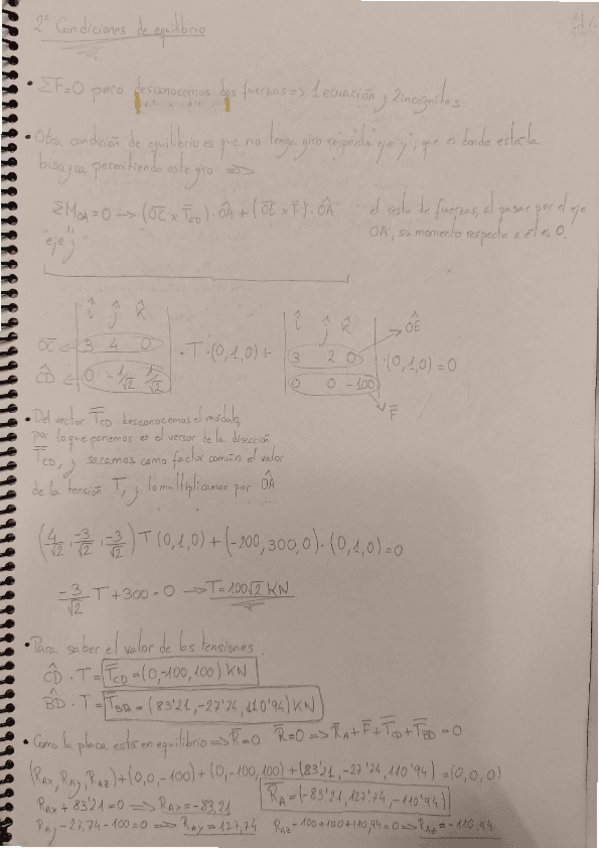 2º Condiciones de equilibrio
• ΣF=0 pero desconocemos dos fuerzas => 1 ecuación y 2 incógnitas
• Otra condición de equilibrio es que no tenga giro respecto "eje y", que es donde está la
bisagra permitiendo este giro =>
ΣM_OA = 0 → (OC x T_CD)·OA + (OE x F)·OA
"eje j"
el resto de fuerzas, al pasar por el eje
OA, su momento respecto a él es 0.
î ĵ k̂
OC ← 3 4 0
ĈD ← 0 -1/√2 1/√2
· T · (0,1,0) +
î ĵ k̂
3 2 0 → OE
0 0 -100 → F
· (0,1,0) = 0
• Del vector T_CD desconocemos el módulo,
por lo que ponemos es el versor de la dirección
T_CD, y sacamos como factor común el valor
de la tensión T, y lo multiplicamos por OA
(4/√2, -3/√2, -3/√2) T (0,1,0) + (-200, 300, 0) · (0,1,0) = 0
-3/√2 T + 300 = 0 → T = 100√2 KN
• Para saber el valor de las tensiones.
ĈD · T = T_CD = (0, -100, 100) KN
B̂D · T = T_BD = (83'21, -27'74, 110'94) KN
• Como la placa está en equilibrio => R = 0 R = 0 => R_A + F + T_CD + T_BD = 0
(R_Ax, R_Ay, R_Az) + (0,0,-100) + (0,-100,100) + (83'21, -27'74, 110'94) = (0,0,0)
R_Ax + 83'21 = 0 => R_Ax = -83,21
R_A = (-83'21, 127'74, -110'94)
R_Ay - 27,74 - 100 = 0 => R_Ay = 127,74 R_Az - 100 + 100 + 110,94 = 0 => R_Az = -110,94